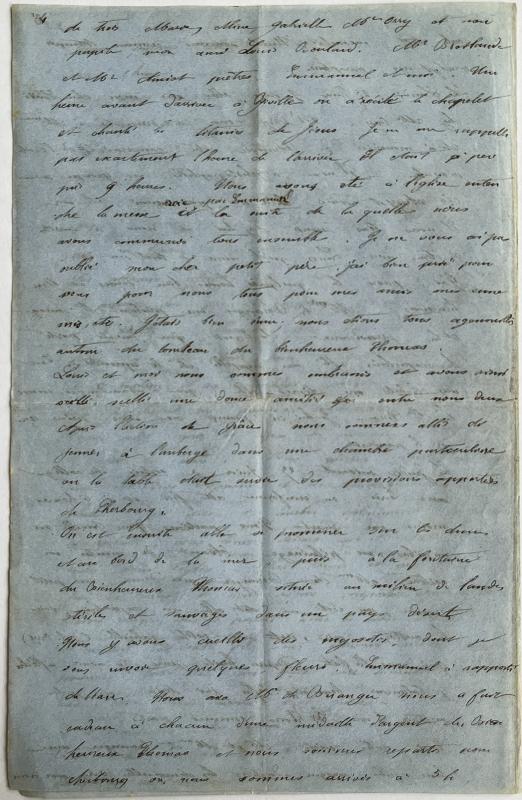 4
de trois Mme gabriell Mr Orry et son
mon ami Louis Mr
et Mr prêtres Emmanuel et moi. Une
heure avant d'arriver à on a récité le chapelet
et chanté les litanies de Jésus je ne me rappelle
pas exactement l'heure de l'arrivée Il était à peu
près 9 heures. Nous avons été à l'église enten
dre la messe dite par Emmanuel à la suite de laquelle nous
avons communié tous ensemble. Je ne vous ai pas
oublié mon cher petit père j'ai bien prié pour
vous pour nous tous pour mes amis mes enne
mis etc. J'étais bien ému nous étions tous agenouillés
autour du tombeau du bienheureux Thomas.
Louis et moi nous sommes embrassés et avons
scellé une douce amitié entre nous deux
Après l'action de grâce nous sommes allés dé
jeuner à l'auberge dans une chambre particulière
où la table était servie des provisions apportées
de Cherbourg.
On est ensuite allé se promener sur les dunes
et au bord de la mer puis à la fontaine
du Bienheureux Thomas située au milieu de landes
stériles et sauvages dans un pays désert.
Nous y avons cueilli des myosotis, dont je
vous envoie quelques fleurs. Emmanuel a rapporté
Mr de Béranger nous a fait
cadeau à chacun d'une médaille d'argent du Bien
heureux Thomas et nous sommes repartis pour
Cherbourg où nous sommes arrivés à 5 h.